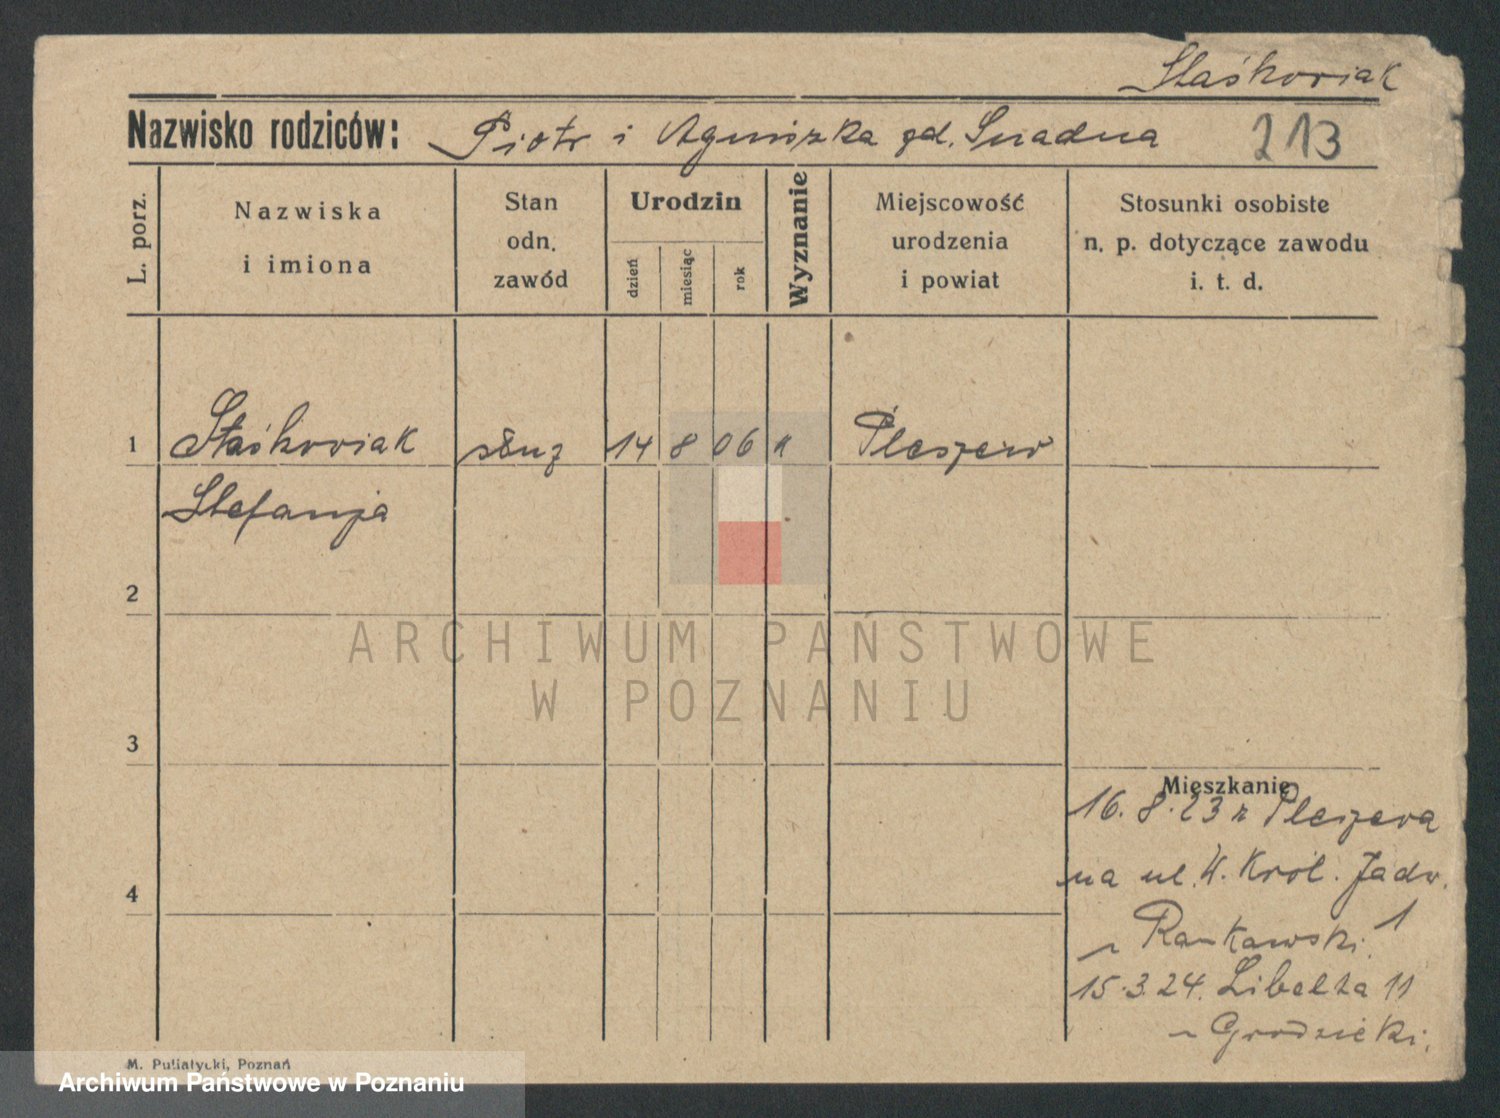 Staśkowiak
Nazwisko rodziców: Piotr i Agniszka gd. Snadna 213
L. porz.
Nazwiska
i imiona
Stan
odn.
zawód
Urodzin
dzień
miesiąc
rok
Wyznanie
Miejscowość
urodzenia
i powiat
Stosunki osobiste
n. p. dotyczące zawodu
i. t. d.
1 Staśkowiak służ 14 8 06 k Pleszew
Stefanja
2
3
4
Mieszkanie
16. 8. 23 z Pleszewa
na ul. W. Król. Jadw. 1
Ratkawski
15.3.24. Libelta 11
Grodzicki.
M. Puliatycki, Poznań
ARCHIWUM PAŃSTWOWE
W POZNANIU
Archiwum Państwowe w Poznaniu